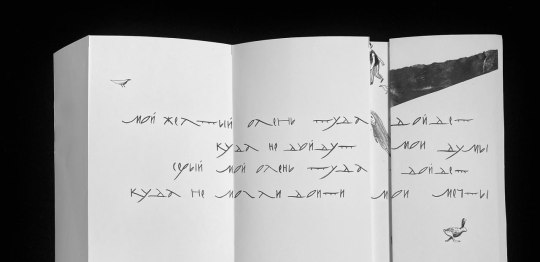 мой желтый олень туда дойдет
куда не дойдут мои думы
серый мой олень туда дойдет
куда не могли дойти мои мечты